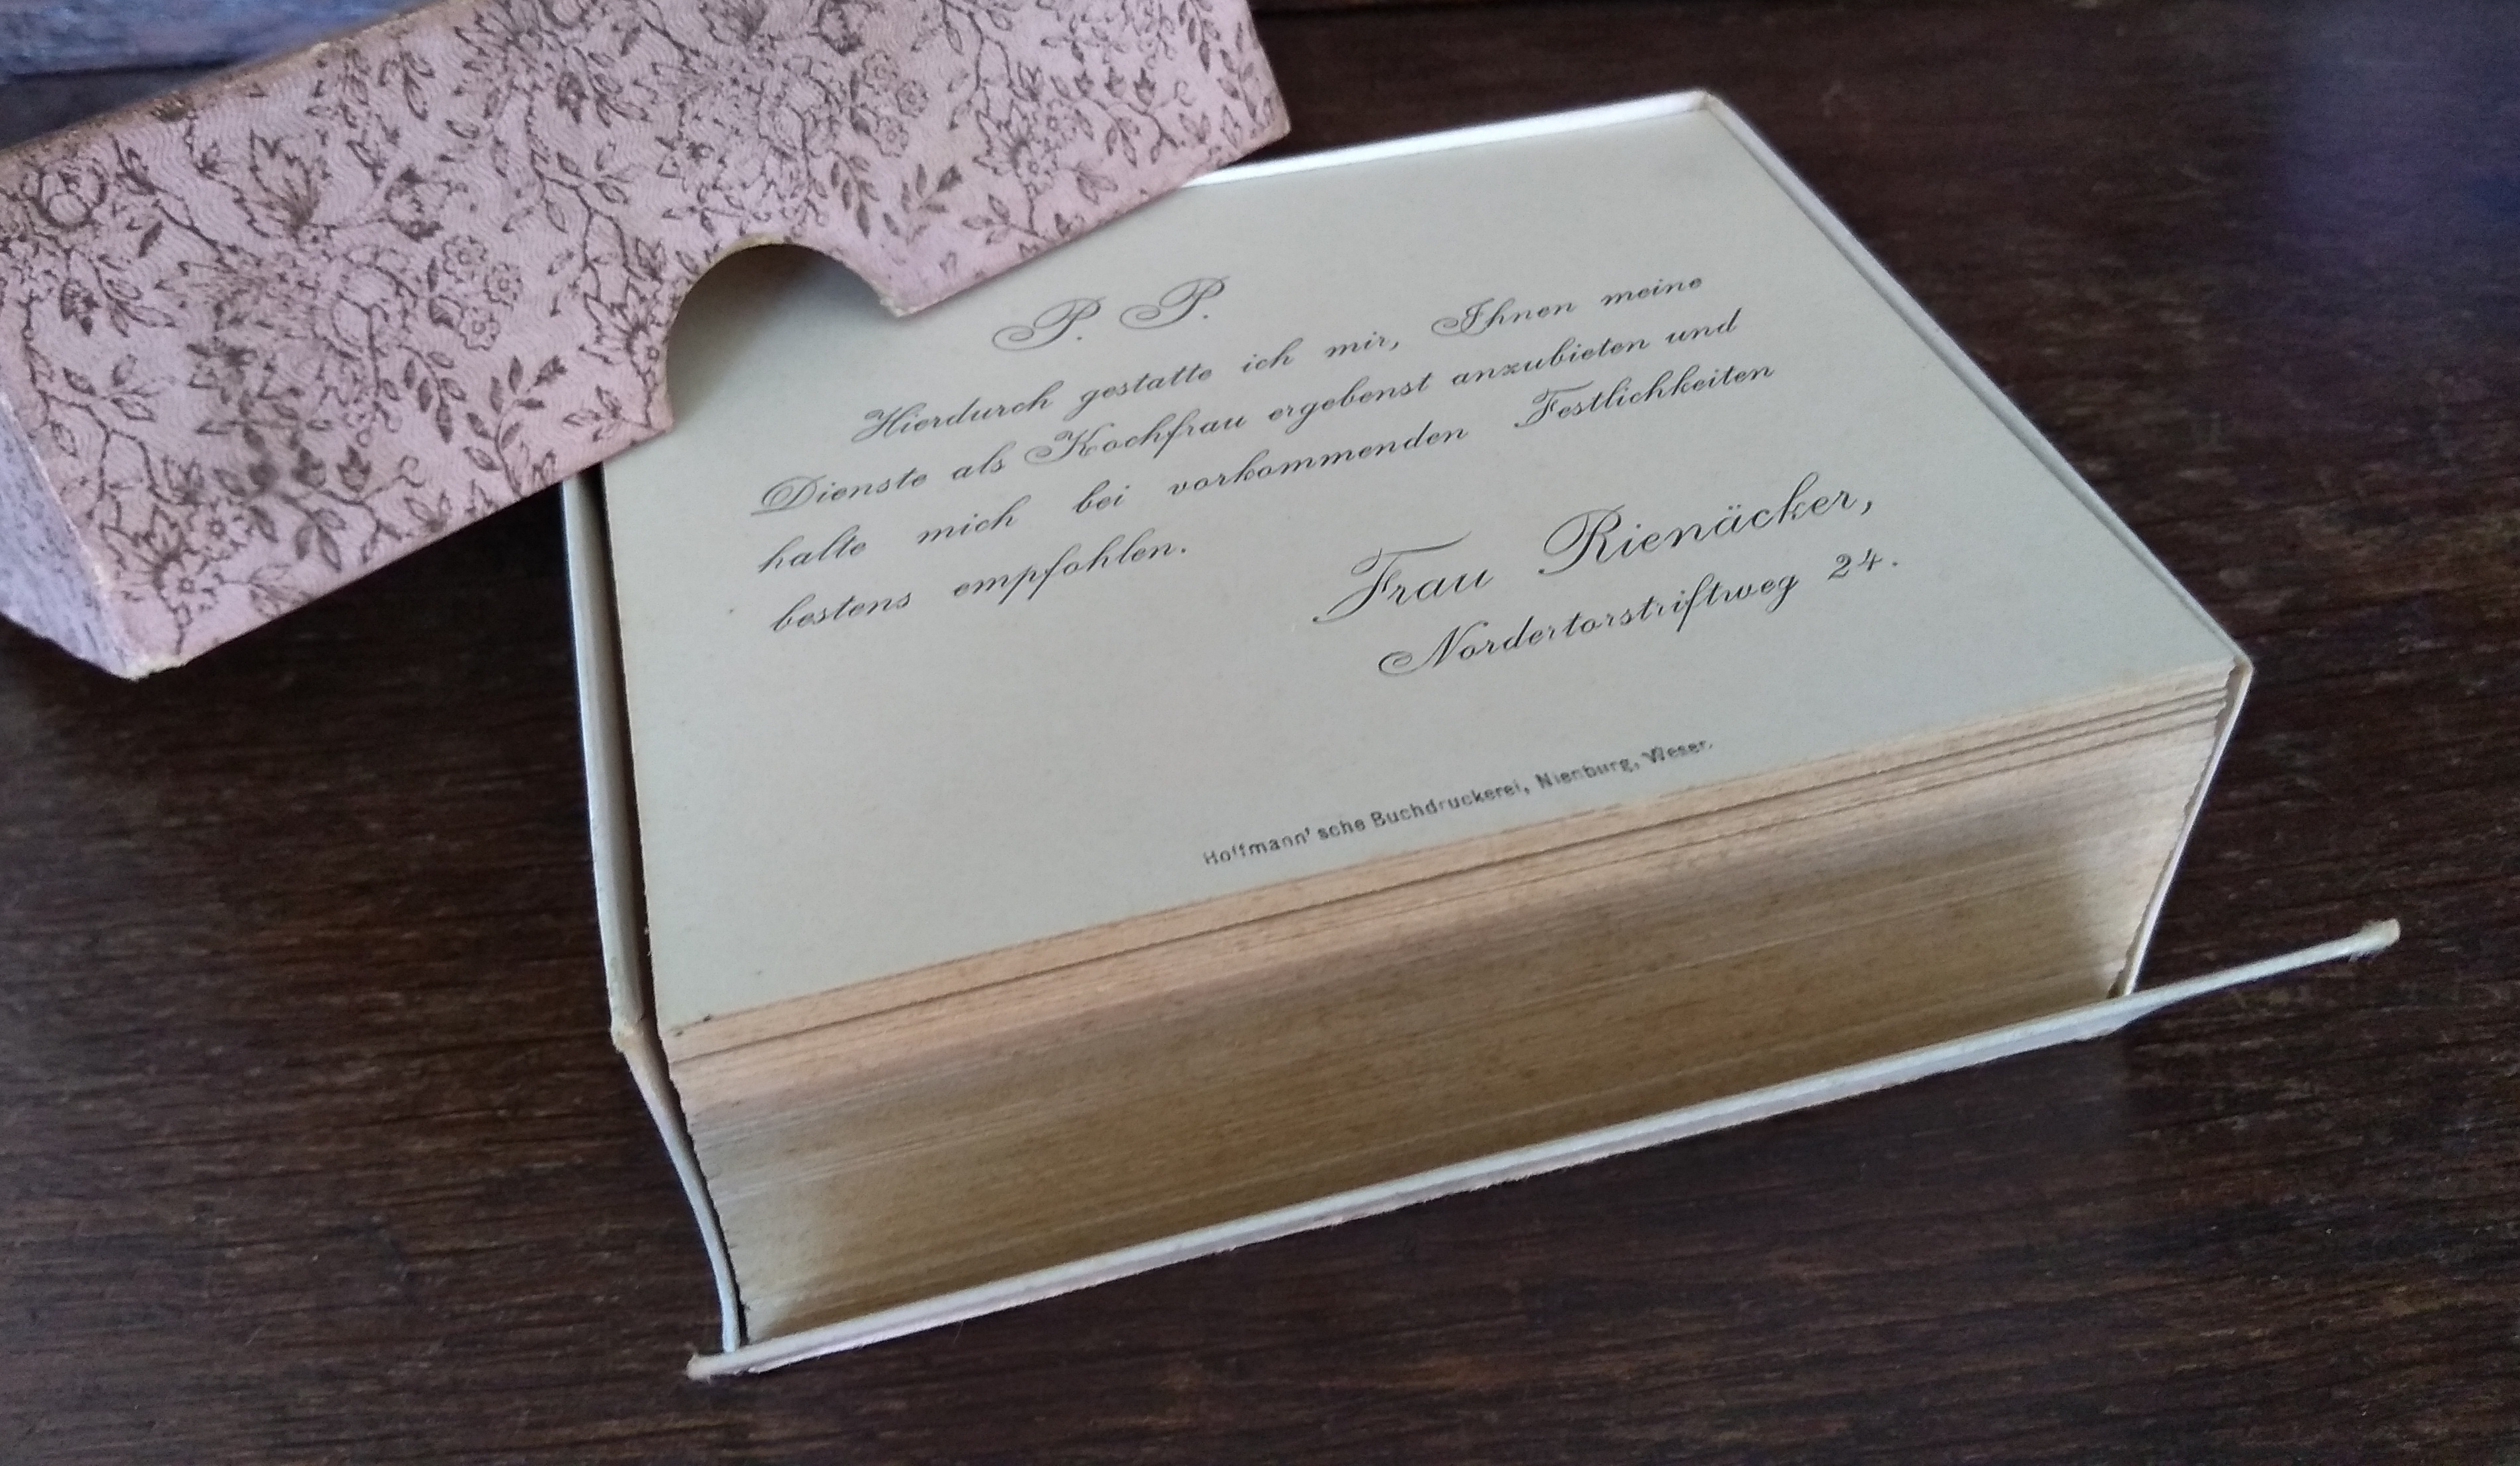 P. P.
Hierdurch gestatte ich mir, Ihnen meine
Dienste als Kochfrau ergebenst anzubieten und
halte mich bei vorkommenden Festlichkeiten
bestens empfohlen.
Frau Rienäcker,
Nordertorstriftweg 24.
Hoffmann'sche Buchdruckerei, Nienburg, Weser.